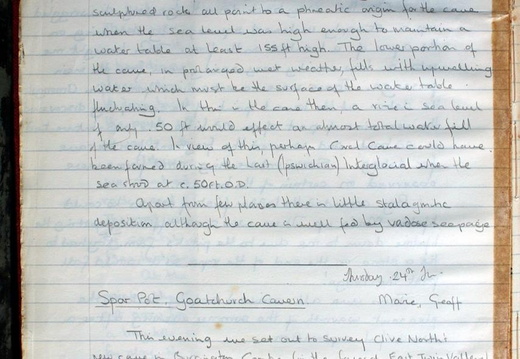 sculptured rock all point to a phreatic origin for the cave
when the sea level was high enough to maintain a
water table at least 155 ft high. The lower portion of
the cave, in prolonged wet weather, fills with upwelling
water which must be the surface of the water table
fluctuating. In this is the case then, a rise in sea level
of only 50 ft would effect an almost total water fill
of the cave. In view of this, perhaps Coral Cave could have
been formed during the Last (Ipswichian) Interglacial when the
sea stood at c. 50ft. O.D.
Apart from few places there is little stalagmitic
deposition although the cave is well fed by vadose seepage
Thursday 24th
Spar Pot, Goatchurch Cavern Marie, Geoff
This evening we set out to survey Clive North's
new cave in Burrington Combe East Twin Valley